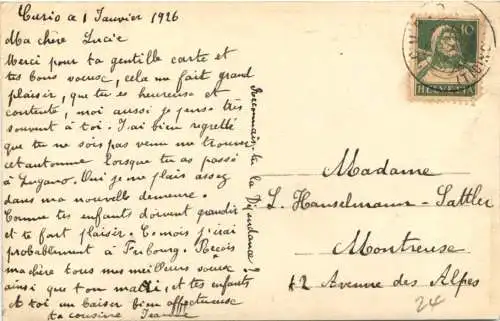 Curio a 1 Janvier 1926
Ma chère Lucie
Merci pour ta gentille carte et
tes bons voeux, cela me fait grand
plaisir, que tu es heureuse et
contente, moi aussi je pense très
souvent à toi. J'ai bien regretté
que tu ne sois pas venu me trouver
cet automne lorsque tu as passé
à Lugano. Oui je me plais assez
dans ma nouvelle demeure.
Comme tes enfants doivent grandir
et te font plaisir. Ce mois j'irai
probablement à Fribourg. Reçois
ma chère tous mes meilleurs voeux
ainsi que ton mari et tes enfants
et toi un baiser bien affectueuse
ta cousine Jeanne
Reconnais-tu la Vifendana?
10
HELVETIA
Madame
L. Hanselmann-Sattler
Montreuse
42 Avenue des Alpes
24